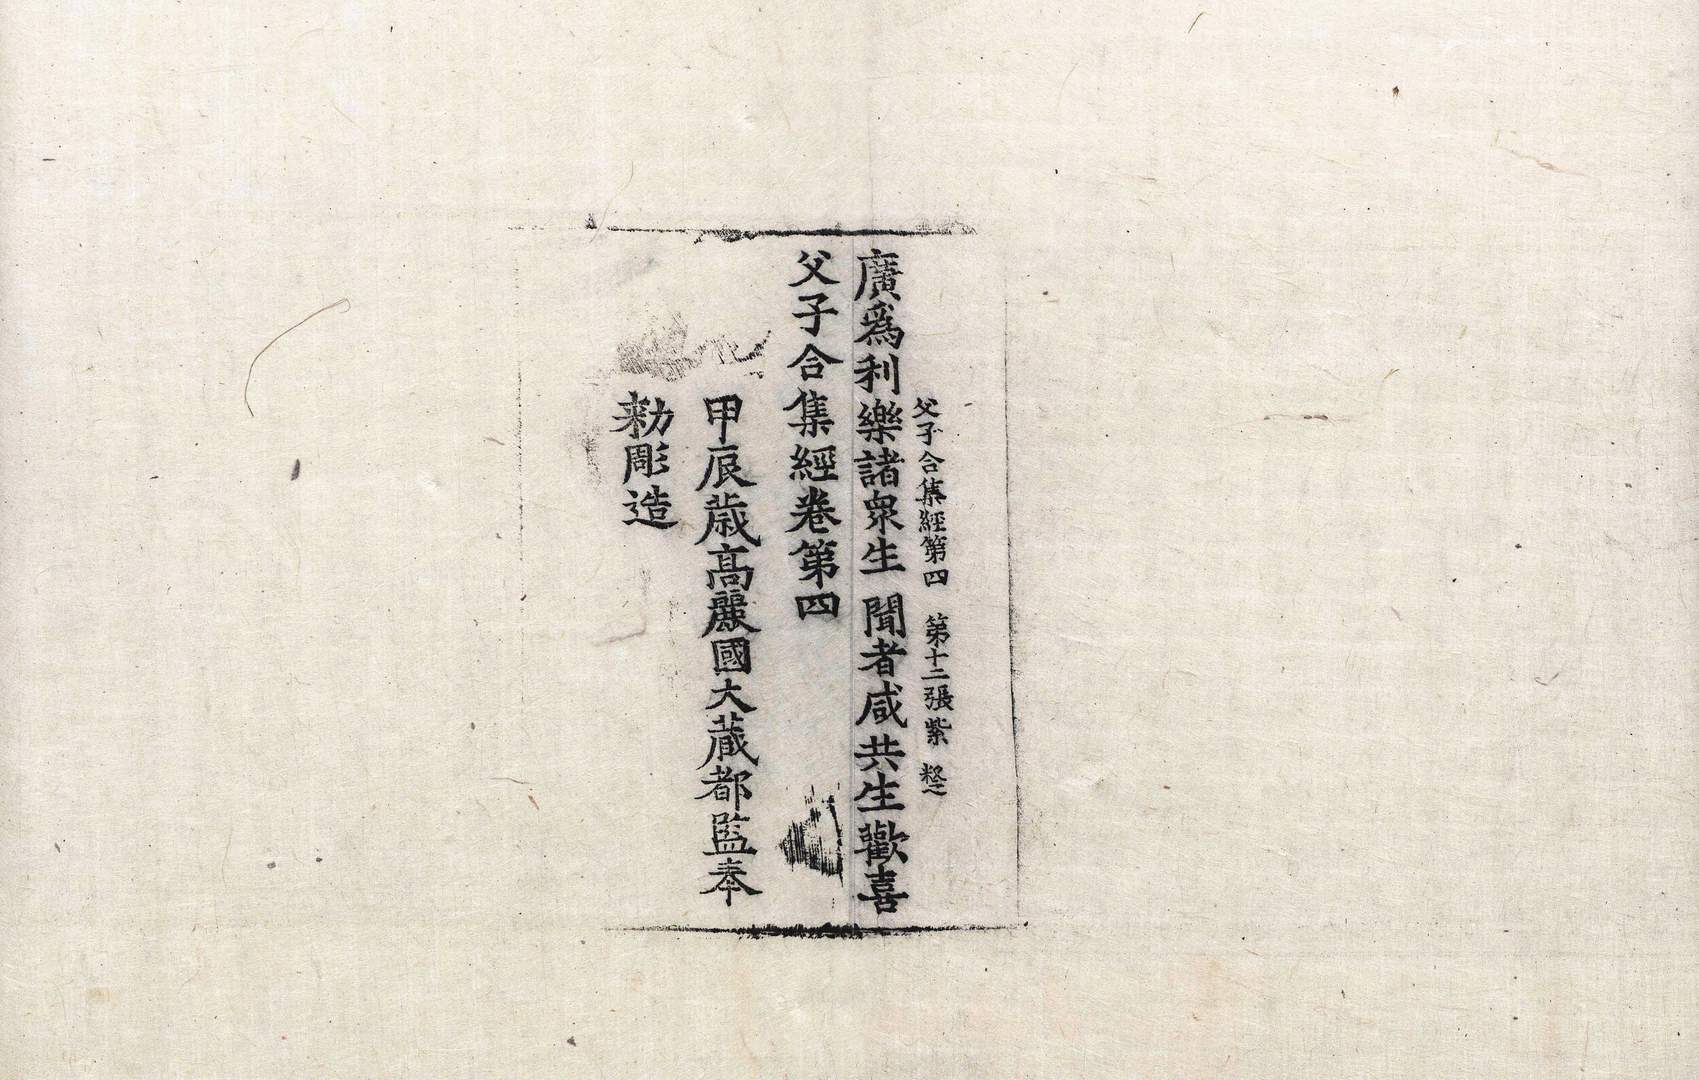 父子合集經第四 第十二張 紫
廣爲利樂諸衆生 聞者咸共生歡喜
父子合集經卷第四
甲辰歲高麗國大藏都監奉
勑彫造